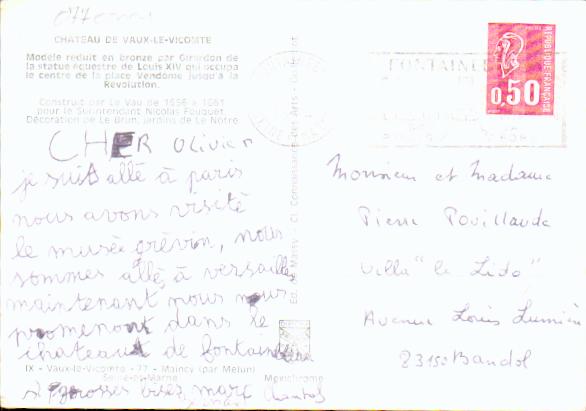 CHATEAU DE VAUX-LE-VICOMTE
Modèle réduit en bronze par Girardon de
la statue équestre de Louis XIV qui occupa
le centre de la place Vendôme jusqu'à la
Révolution.
Construit par Le Vau de 1656 à 1661
pour le Surintendant Nicolas Fouquet.
Décoration de Le Brun, jardins de Le Nôtre
CHER Olivier
je suis allé à paris
nous avons visité
le musée grévin, nous
sommes allé à versaille
maintenant nous nous
promenont dans le
chateau de fontainebleau
IX - Vaux-le-Vicomte - 77 - Maincy (par Melun)
Seine-et-Marne Mexichrome
grosses bises marc
Chantal
Ed. de Massy - Cl. Connaissance des Arts -
FONTAINEBLEAU
RÉPUBLIQUE FRANÇAISE
0,50
Monsieur et Madame
Pierre Pouillaude
Villa "le Lido"
Avenue Louis Lumière
83150 Bandol